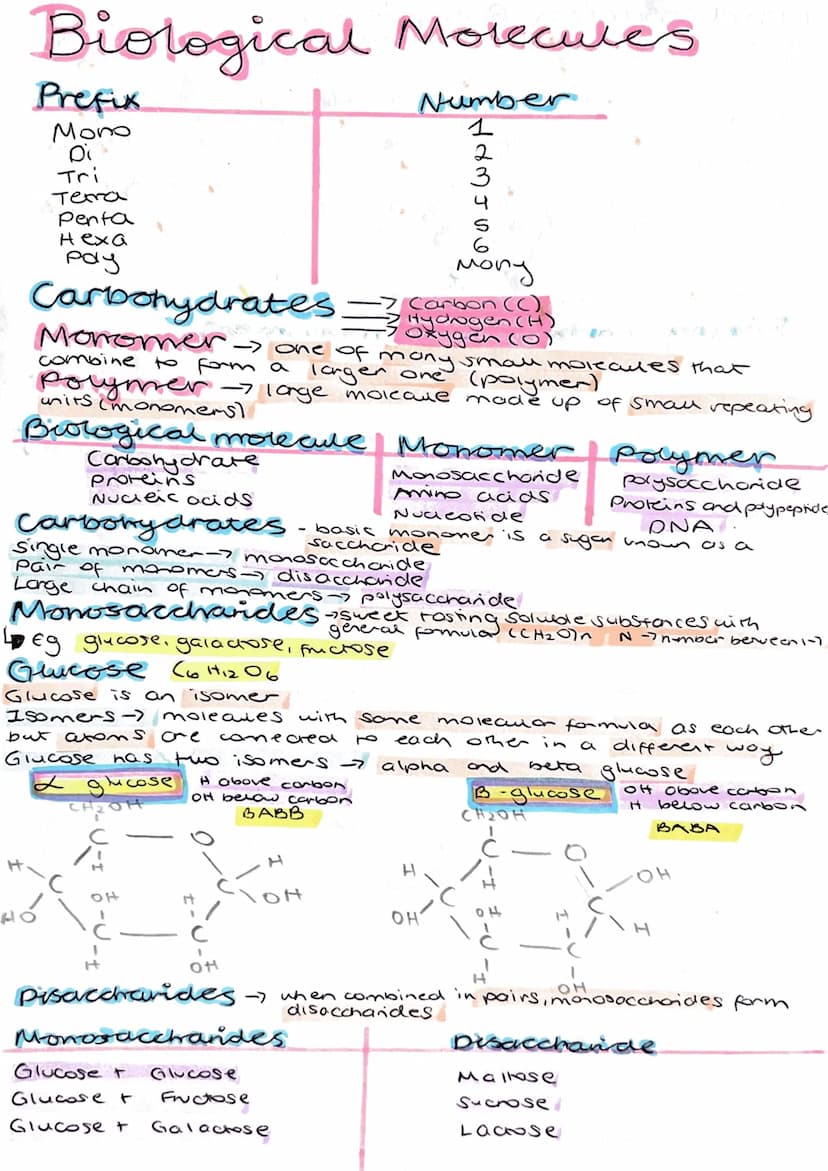 Biological Molecules
Prefix Number
Mono 1
Di 2
Tri 3
Tetra 4
Penta 5
Hexa 6
Poly Many
Carbohydrates → Carbon (C)
→ Hydrogen (H)
→ Oxygen (O)
Monomer → one of many small molecules that
combine to form a larger one (polymer)
Polymer → large molecule made up of small repeating
units (monomers)
Biological molecule Monomer Polymer
Carbohydrate Monosaccharide Polysaccharide
Proteins Amino acids Proteins and polypeptide
Nucleic acids Nucleotide DNA
Carbohydrates - basic monomer is a sugar known as a
saccharide
Single monomer → monosaccharide
Pair of monomers → disaccharide
Large chain of monomers → polysaccharide
Monosaccharides → sweet tasting soluble substances with
general formula (CH2O)n N → number between 1-7
↳ Eg glucose, galactose, fructose
Glucose C6 H12 O6
Glucose is an isomer
Isomers → molecules with same molecular formula as each other
but atoms are connected to each other in a different way
Glucose has two isomers → alpha and beta glucose
α glucose H above carbon
OH below carbon
BABB
B-glucose OH above carbon
H below carbon
BABA
CH2OH
C O
H H
C H C
HO OH H OH
C C
H OH
CH2OH
C O
H OH
C H C
OH OH H H
C C
H OH
Disaccharides → when combined in pairs, monosaccharides form
disaccharides
Monosaccharides Disaccharide
Glucose + Glucose Maltose
Glucose + Fructose Sucrose
Glucose + Galactose Lactose